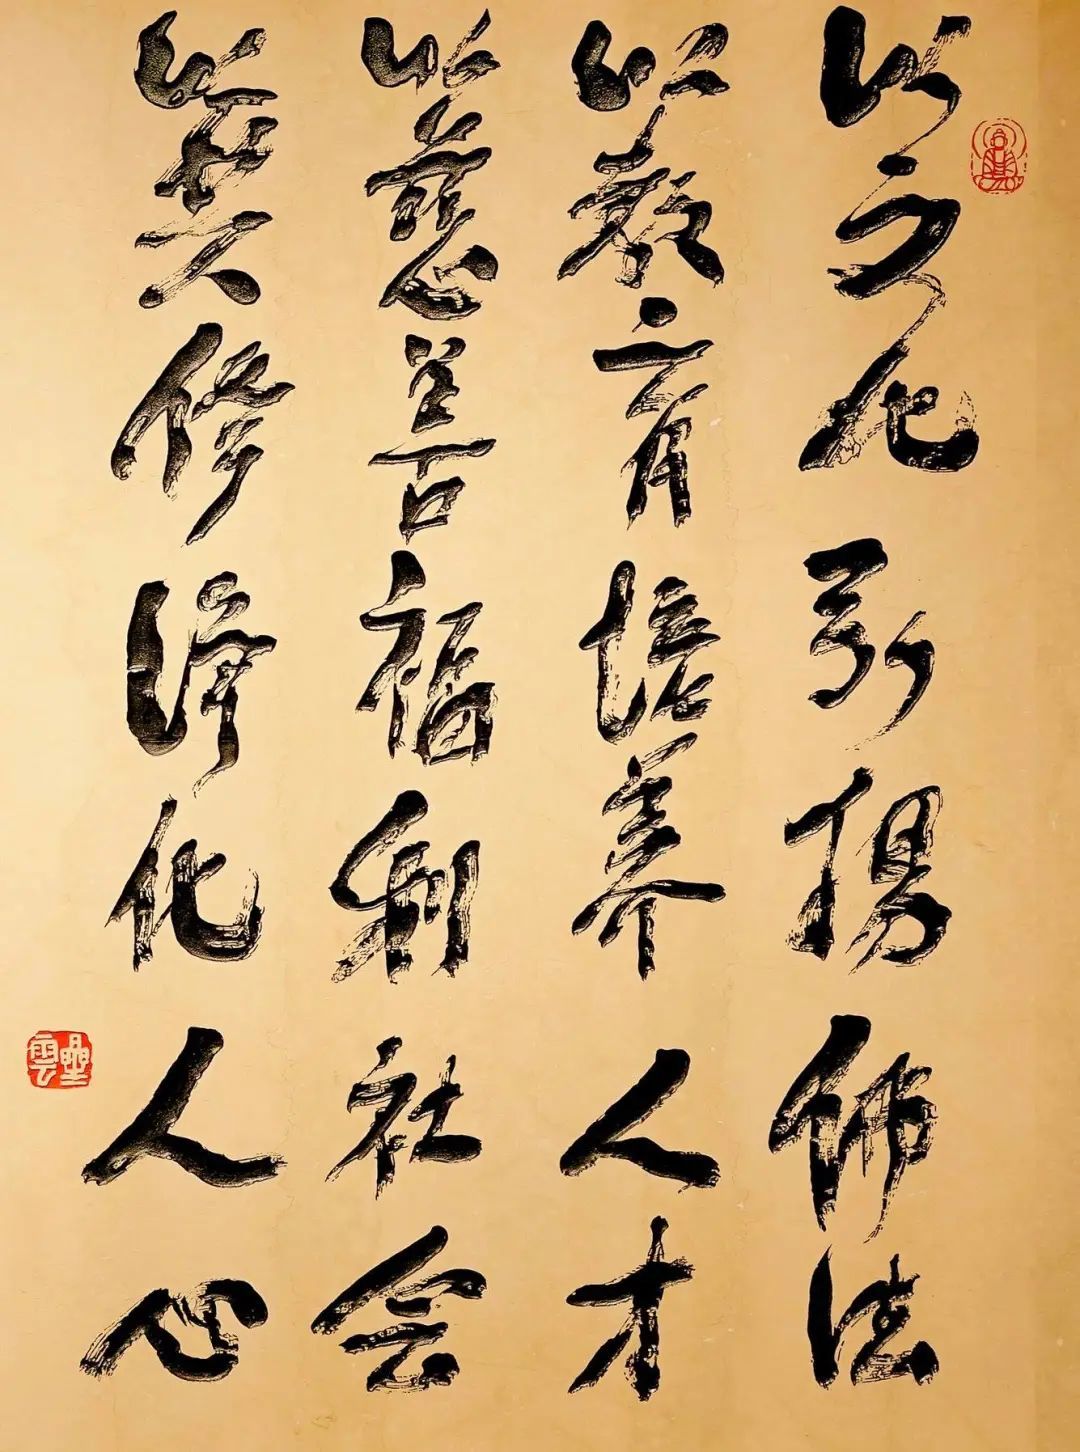 以文化弘揚佛法
以教育培養人才
以慈善福利社会
以共修淨化人心
星雲